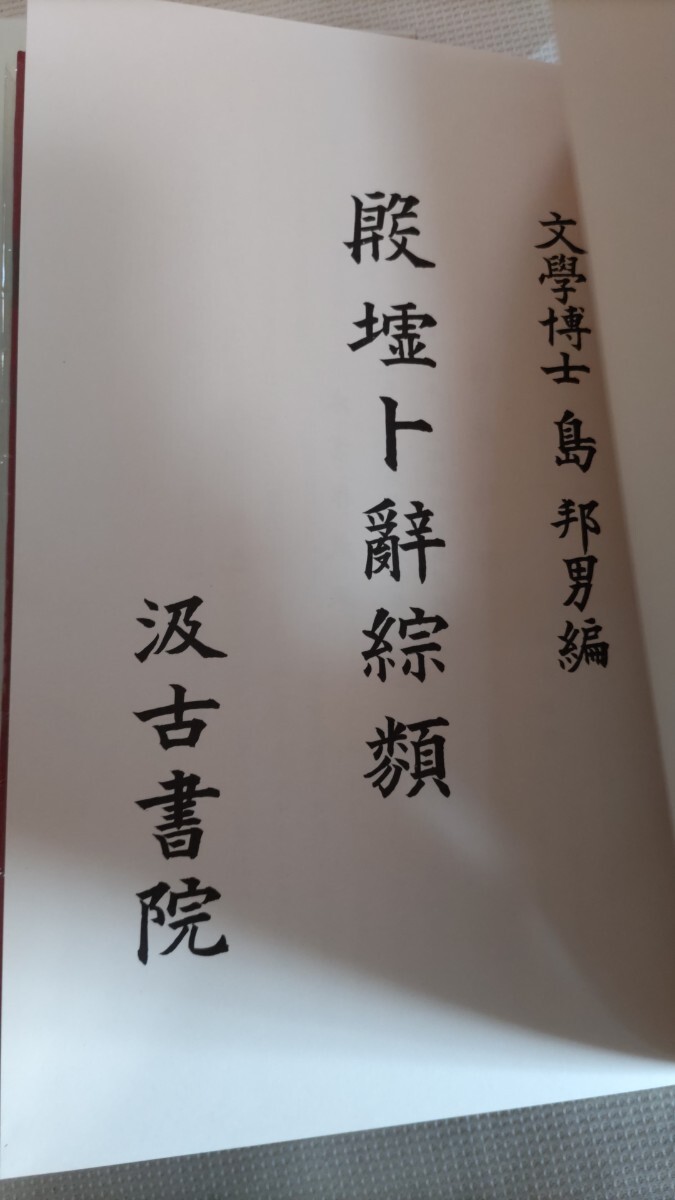 文學博士 島 邦男編
殷墟卜辭綜類
汲古書院